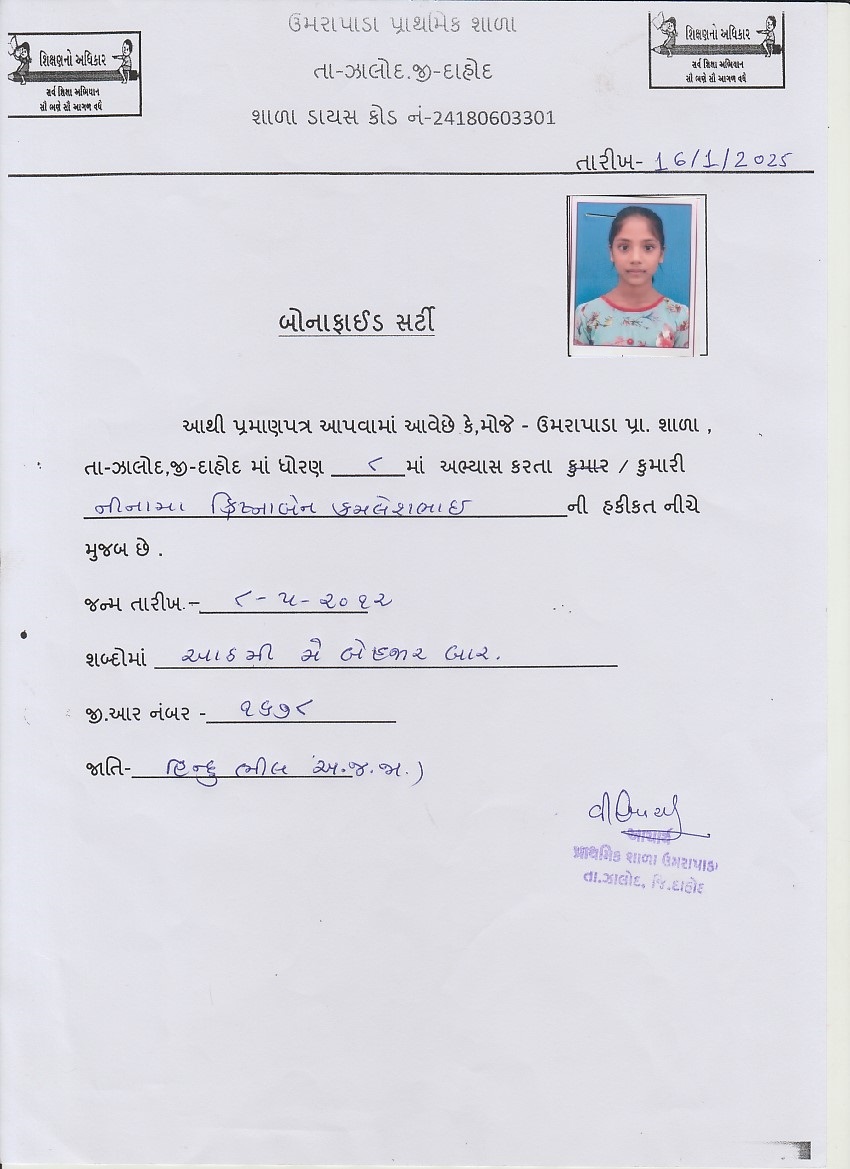 ઉમરાપાડા પ્રાથમિક શાળા
તા-ઝાલોદ.જી-દાહોદ
શાળા ડાયસ કોડ નં-24180603301
શિક્ષણનો અધિકાર
સર્વ શિક્ષા અભિયાન
સૌ ભણે સૌ આગળ વધે
શિક્ષણનો અધિકાર
સર્વ શિક્ષા અભિયાન
સૌ ભણે સૌ આગળ વધે
તારીખ- 16/1/2025
બોનાફાઈડ સર્ટી
આથી પ્રમાણપત્ર આપવામાં આવેછે કે,મોજે - ઉમરાપાડા પ્રા. શાળા ,
તા-ઝાલોદ,જી-દાહોદ માં ધોરણ ૮ માં અભ્યાસ કરતા કુમાર / કુમારી
નીનામા ક્રિષ્નાબેન કમલેશભાઇ ની હકીકત નીચે
મુજબ છે .
જન્મ તારીખ.– ૮-૫-૨૦૧૨
શબ્દોમાં આઠમી મે બેહજાર બાર.
જી.આર નંબર - ૧૬૭૮
જાતિ- હિન્દુ ભીલ અ.જ.જા.)
આચાર્ય
પ્રાથમિક શાળા ઉમરાપાડા
તા.ઝાલોદ, જિ.દાહોદ